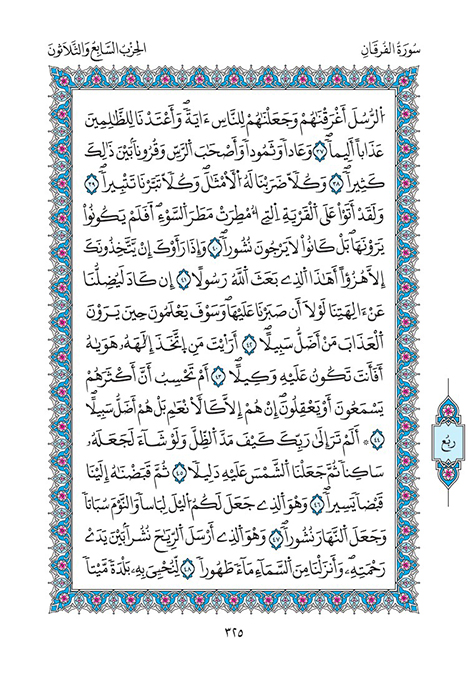 سُورَةُ الفُرقَانِ
الحِزبُ السَّابِعُ وَالثَّلَاثُونَ
اَ۬لرُّسُلَ أَغْرَقْنَٰهُمْ وَجَعَلْنَٰهُمْ لِلنَّاسِ ءَايَةٗۖ وَأَعْتَدْنَا لِلظَّٰلِمِينَ
عَذَاباً أَلِيماٗۖ ٣٧ وَعَاداٗ وَثَمُوداٗ وَأَصْحَٰبَ اَ۬لرَّسِّ وَقُرُوناَۢ بَيْنَ ذَٰلِكَ
كَثِيراٗۖ ٣٨ وَكُلّاٗ ضَرَبْنَا لَهُ اُ۬لْأَمْثَٰلَۖ وَكُلّاٗ تَبَّرْنَا تَتْبِيراٗۖ ٣٩
وَلَقَدْ أَتَوْاْ عَلَى اَ۬لْقَرْيَةِ اِ۬لتِےٓ أُمْطِرَتْ مَطَرَ اَ۬لسَّوْءِۖ اَفَلَمْ يَكُونُواْ
يَرَوْنَهَاۖ بَلْ كَانُواْ لَا يَرْجُونَ نُشُوراٗۖ ٤٠ وَإِذَا رَأَوْكَ إِنْ يَّتَّخِذُونَكَ
إِلَّا هُزُؤاً أَهَٰذَا اَ۬لذِے بَعَثَ اَ۬للَّهُ رَسُولًاۖ ٤١ إِن كَادَ لَيُضِلُّنَا
عَنْ ءَالِهَتِنَا لَوْلَآ أَن صَبَرْنَا عَلَيْهَاۖ وَسَوْفَ يَعْلَمُونَ حِينَ يَرَوْنَ
اَ۬لْعَذَابَ مَنْ أَضَلُّ سَبِيلًاۖ ٤٢ أَرَٰٓيْتَ مَنِ اِ۪تَّخَذَ إِلَٰهَهُۥ هَوَيٰهُ
أَفَأَنتَ تَكُونُ عَلَيْهِ وَكِيلًاۖ ٤٣ أَمْ تَحْسِبُ أَنَّ أَكْثَرَهُمْ
يَسْمَعُونَ أَوْ يَعْقِلُونَۖ إِنْ هُمْ إِلَّا كَالْأَنْعَٰمِ بَلْ هُمْ أَضَلُّ سَبِيلًاۖ
٤٤ ۞ أَلَمْ تَرَ إِلَىٰ رَبِّكَ كَيْفَ مَدَّ اَ۬لظِّلَّ وَلَوْ شَآءَ لَجَعَلَهُۥ
سَاكِناٗ ثُمَّ جَعَلْنَا اَ۬لشَّمْسَ عَلَيْهِ دَلِيلًاۖ ٤٥ ثُمَّ قَبَضْنَٰهُ إِلَيْنَا
قَبْضاٗ يَسِيراٗۖ ٤٦ وَهُوَ اَ۬لذِے جَعَلَ لَكُمُ اُ۬ليْلَ لِبَاساٗ وَالنَّوْمَ سُبَاتاٗ
وَجَعَلَ اَ۬لنَّهَارَ نُشُوراٗۖ ٤٧ وَهُوَ اَ۬لذِےٓ أَرْسَلَ اَ۬لرِّيَٰحَ نُشُراَۢ بَيْنَ يَدَےْ
رَحْمَتِهِۦۖ وَأَنزَلْنَا مِنَ اَ۬لسَّمَآءِ مَآءٗ طَهُوراٗ ٤٨ لِّنُحْـِۧيَ بِهِۦ بَلْدَةٗ مَّيْتاٗ
رُبُع
٣٢٥